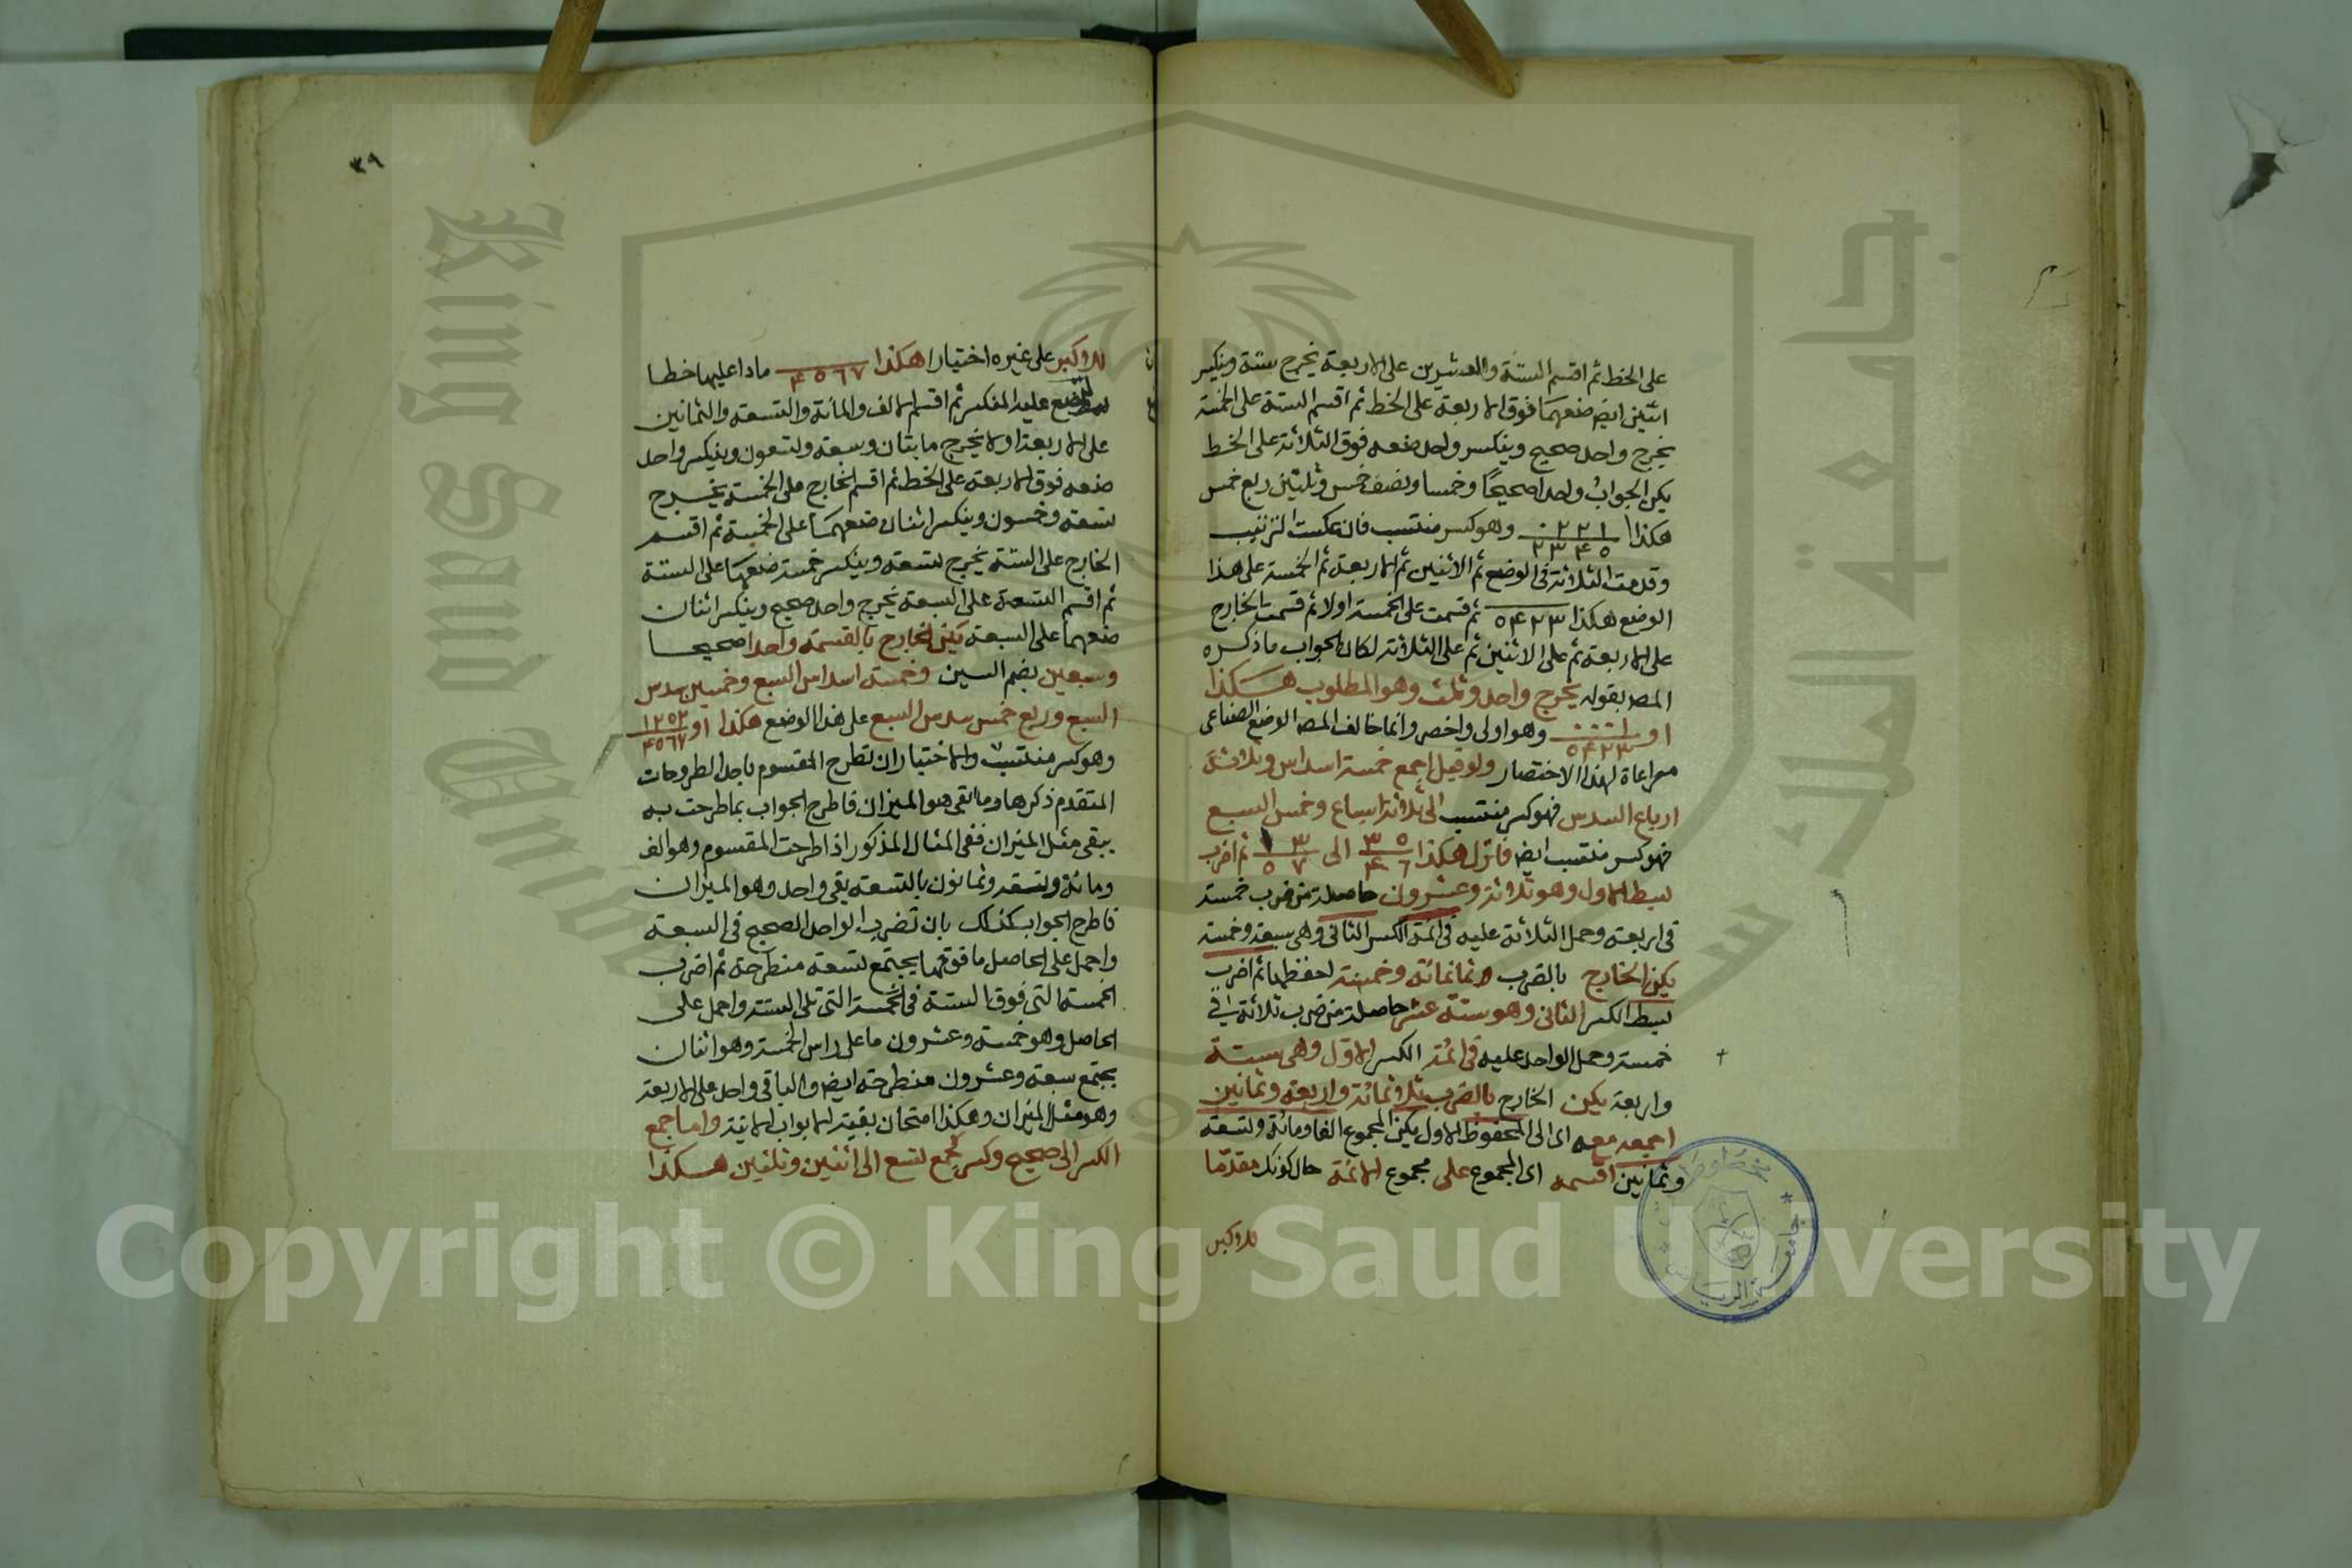 على الخط ثم اقسم الستة والعشرين على الاربعة يخرج ستة وينكسر
اثنين ايض ضعهما فوق الاربعة على الخط ثم اقسم الستة على الخمسة
يخرج واحد صحيح وينكسر واحد ضعه فوق الثلاثة على الخط
يكن الجواب واحدا صحيحًا وخمسا ونصف خمس وثلثين ربع خمس
هكذا وهو كسر منتسب فان عكست الترتيب
وقدمت الثلاثة فى الوضع ثم الاثنين ثم الاربعة ثم الخمسة على هذا
الوضع هكذا ٣ ٢ ٤ ٥ ثم قسمت على الخمسة اولا ثم قسمت الخارج
على الاربعة ثم على الاثنين ثم على الثلاثة لكان الجواب ما ذكره
المصـ بقوله يخرج واحد وثلث وهو المطلوب هكذا
وهو اولى واخصر وانما خالف المصـ الوضع الصناعى
مراعاة لهذا الاختصار ولو قيل اجمع خمسة اسداس وثلاثة
ارباع السدس فهو كسر منتسب الى ثلاثة اسباع وخمس السبع
فهو كسر منتسب ايض فانزل هكذا ٥ ٣ / ٦ ٤ الى ٣ ١ / ٧ ٥ ثم اضرب
بسط الاول وهو ثلاثة وعشرون حاصلة من ضرب خمسة
فى اربعة وحمل الثلاثة عليه فى ائمة الكسر الثانى وهى سبعة وخمسة
يكن الخارج بالضرب ثمانمائة وخمسة احفظها ثم اضرب
بسط الكسر الثانى وهو ستة عشر حاصلة من ضرب ثلاثة فى
خمسة وحمل الواحد عليه فى ائمة الكسر الاول وهى ستة
واربعة يكن الخارج بالضرب ثلاثمائة واربعة وثمانين
اجمعه معه اى الى المحفوظ الاول يكن المجموع الفا ومائة وتسعة
وثمانين اقسمه اى المجموع على مجموع الائمة حال كونك مقدمًا
للاكبر
٣٩
للاكبر على غيره اختيارا هكذا ٧ ٦ ٥ ٤ مادا عليها خطا
لتضع عليه المنكسر ثم اقسم الالف والمائة والتسعة والثمانين
على الاربعة اولا يخرج مايتان وسبعة وتسعون وينكسر واحد
ضعه فوق الاربعة على الخط ثم اقسم الخارج على الخمسة يخرج
تسعة وخمسون وينكسر اثنان ضعهما على الخمسة ثم اقسم
الخارج على الستة يخرج تسعة وينكسر خمسة ضعها على الستة
ثم اقسم التسعة على السبعة يخرج واحد صحيح وينكسر اثنان
ضعهما على السبعة يكن الخارج بالقسمة واحدا صحيحا
وسبعين بضم السين وخمسة اسداس السبع وخمسين سدس
السبع وربع خمس سدس السبع على هذا الوضع هكذا او ٢ ٥ ٢ ١ / ٧ ٦ ٥ ٤
وهو كسر منتسب والاختبار ان تطرح المقسوم باحد الطروحات
المتقدم ذكرها وما بقى هو الميزان فاطرح الجواب بما طرحت به
يبقى مثل الميزان ففى المثال المذكور اذا طرحت المقسوم وهو الف
ومائة وتسعة وثمانون بالتسعة بقى واحد وهو الميزان
فاطرح الجواب كذلك بان تضرب الواحد الصحيح فى السبعة
واحمل على الحاصل ما فوقها يجتمع تسعة منطرحة ثم اضرب
الخمسة التى فوق الستة فى الخمسة التى تلى الستة واحمل على
الحاصل وهو خمسة وعشرون ما على راس الخمسة وهو اثنان
يجتمع سبعة وعشرون منطرحة ايض والباقى واحد على الاربعة
وهو مثل الميزان وهكذا امتحان بقية الابواب الاتية واما جمع
الكسر الى صحيح وكسر كجمع تسع الى اثنين وثلثين هكذا
Copyright © King Saud University